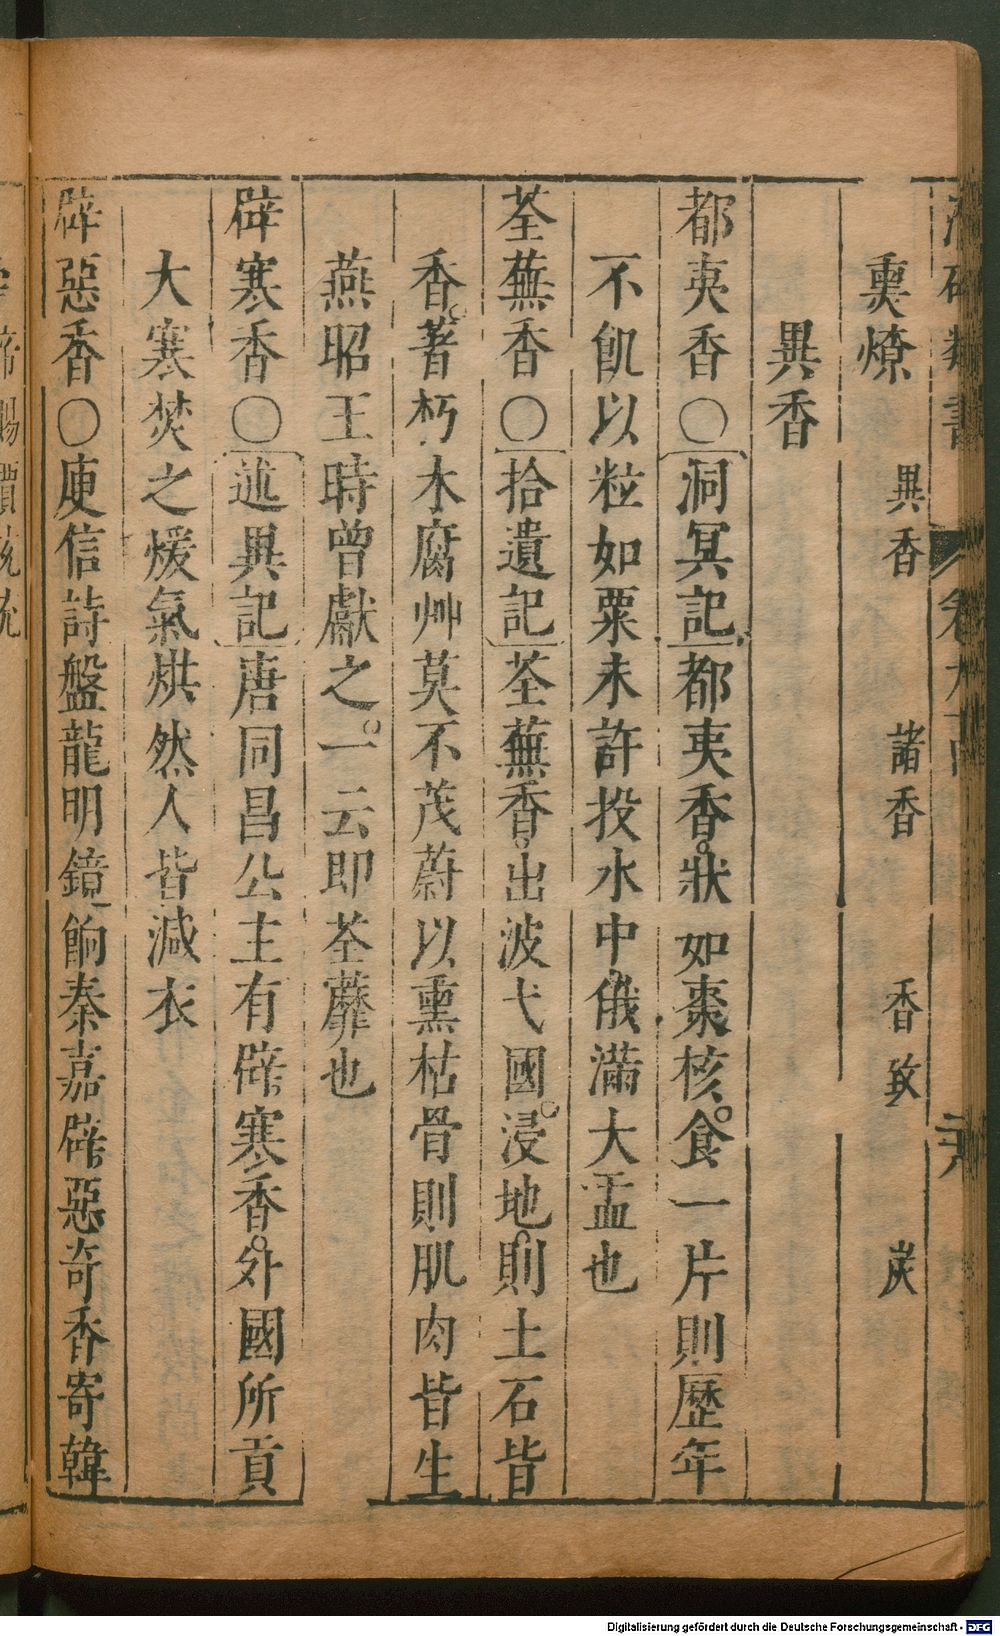 熏燎
異香　諸香　香致　炭
異香
都夷香〇洞冥記都夷香狀如棗核食一片則歷年
不飢以粒如粟未許投水中俄滿大盂也
荃蕪香〇拾遺記荃蕪香出波弋國浸地則土石皆
香著朽木腐艸莫不茂蔚以熏枯骨則肌肉皆生
燕昭王時曾獻之一云即荃蘼也
辟寒香〇述異記唐同昌公主有辟寒香外國所貢
大寒焚之煖氣烘然人皆減衣
辟惡香〇庾信詩盤龍明鏡餉秦嘉辟惡奇香寄韓
Digitalisierung gefördert durch die Deutsche Forschungsgemeinschaft - DFG